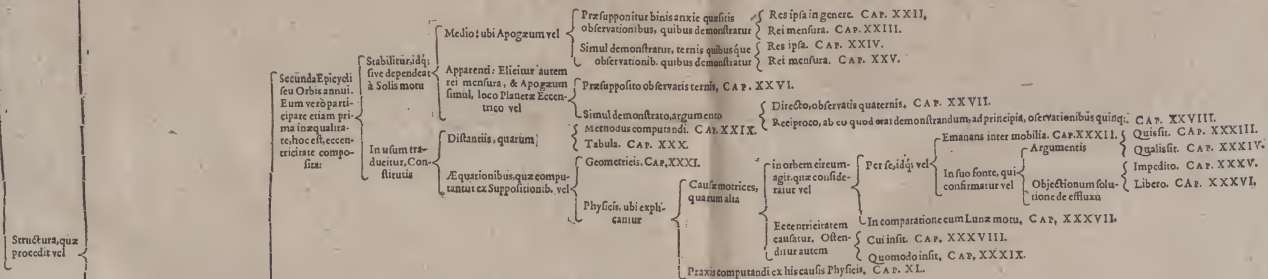 Structura, quæ
procedit vel
Secunda Epicycli
seu Orbis annui.
Eum verò parti-
cipare etiam pri-
ma inæqualita-
te, hoc est, eccen-
tricitate compo-
sita:
Stabilitur, idq;
sive dependeat
à Solis motu
Medio: ubi Apogæum vel
Præsupponitur binis anxie quæsitis
observationibus, quibus demonstratur
Res ipsa in genere. CAP. XXII,
Rei mensura. CAP. XXIII.
Simul demonstratur, ternis quibusque
observationib. quibus demonstratur
Res ipsa. CAP. XXIV.
Rei mensura. CAP. XXV.
Apparenti: Elicitur autem
rei mensura, & Apogæum
simul, loco Planetæ Eccen-
trico vel
Præsupposito observatis ternis, CAP. XXVI.
Simul demonstrato, argumento
Directo, observatis quaternis, CAP. XXVII.
Reciproco, ab eo quod erat demonstrandum, ad principia, observationibus quinq;. CAP. XXVIII.
In usum tra-
ducitur, Con-
stitutis
Distantiis, quarum
Methodus computandi. CAP. XXIX.
Tabula. CAP. XXX.
Æquationibus, quæ compu-
tantur ex Suppositionib. vel
Geometricis. CAP, XXXI.
Physicis. ubi expli-
cantur
Causæ motrices,
quarum alia
in orbem circum-
agit. quæ conside-
ratur vel
Per se, idq; vel
Emanans inter mobilia. CAP. XXXII.
In suo fonte, qui
confirmatur vel
Argumentis
Quis sit. CAP. XXXIII.
Qualis sit. CAP. XXXIV.
Objectionum solu-
tione de effluxu
Impedito. CAP. XXXV.
Libero. CAP. XXXVI,
In comparatione cum Lunæ motu, CAP, XXXVII.
Eccentricitatem
causatur. Osten-
ditur autem
Cui insit. CAP. XXXVIII.
Quomodo insit, CAP. XXXIX.
Praxis computandi ex his causis Physicis, CAP. XL.